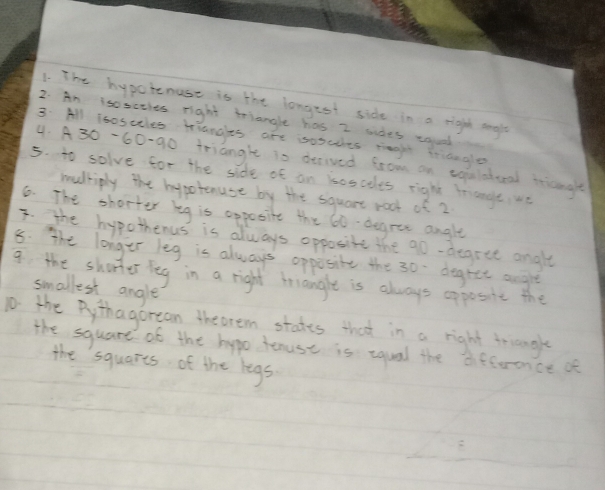 1. The hypotenuse is the longest side in a right angle
2. An isosceles right triangle has 2 sides equal
3. All isosceles triangles are isosceles right triangles
4. A 30-60-90 triangle is derived from an equilateral triangle
5. to solve for the side of an isosceles right triangle, we
multiply the hypotenuse by the square root of 2.
6. The shorter leg is opposite the 60-degree angle
7. the hypothenus is always opposite the 90-degree angle
8. The longer leg is always opposite the 30-degree angle
9. the shorter leg in a right triangle is always opposite the
smallest angle
10. the Pythagorean theorem states that in a right triangle
the square of the hypo tenuse is equal the difference of
the squares of the legs.